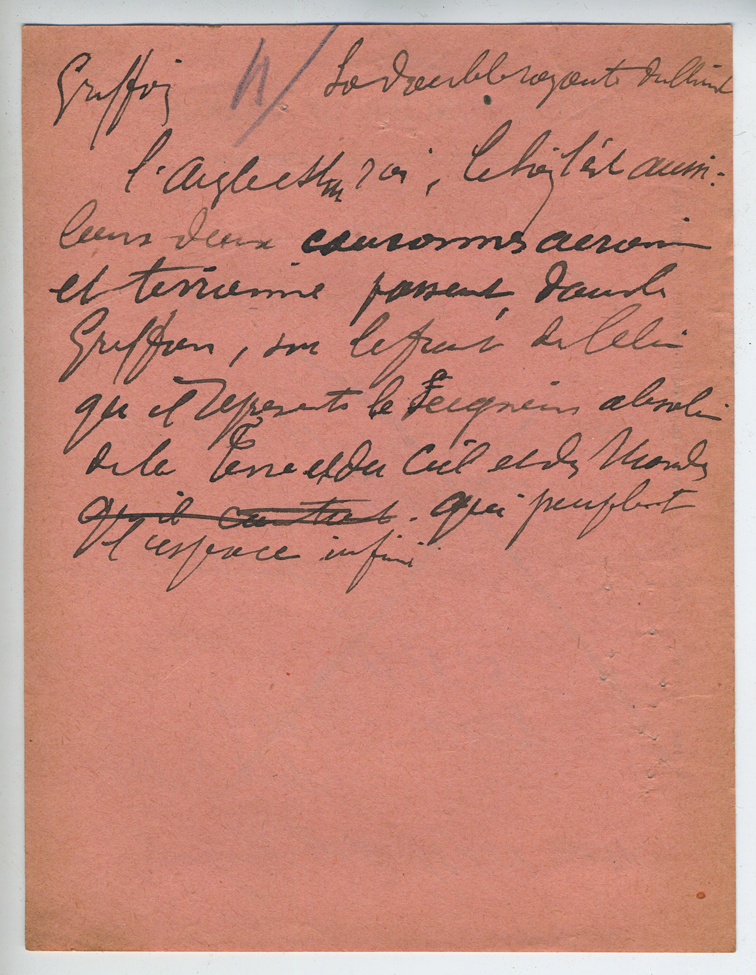 Griffon 4/ La double royauté du Christ
l'aigle est un roi, le lion l'est aussi:
leurs deux couronnes aerienne
et terrienne passent dans le
Griffon, sur le front de Celui
qu'il represente le Seigneur absolu
de la Terre et du Ciel et des Mondes
qu'il qui peuplent
l'espace infini